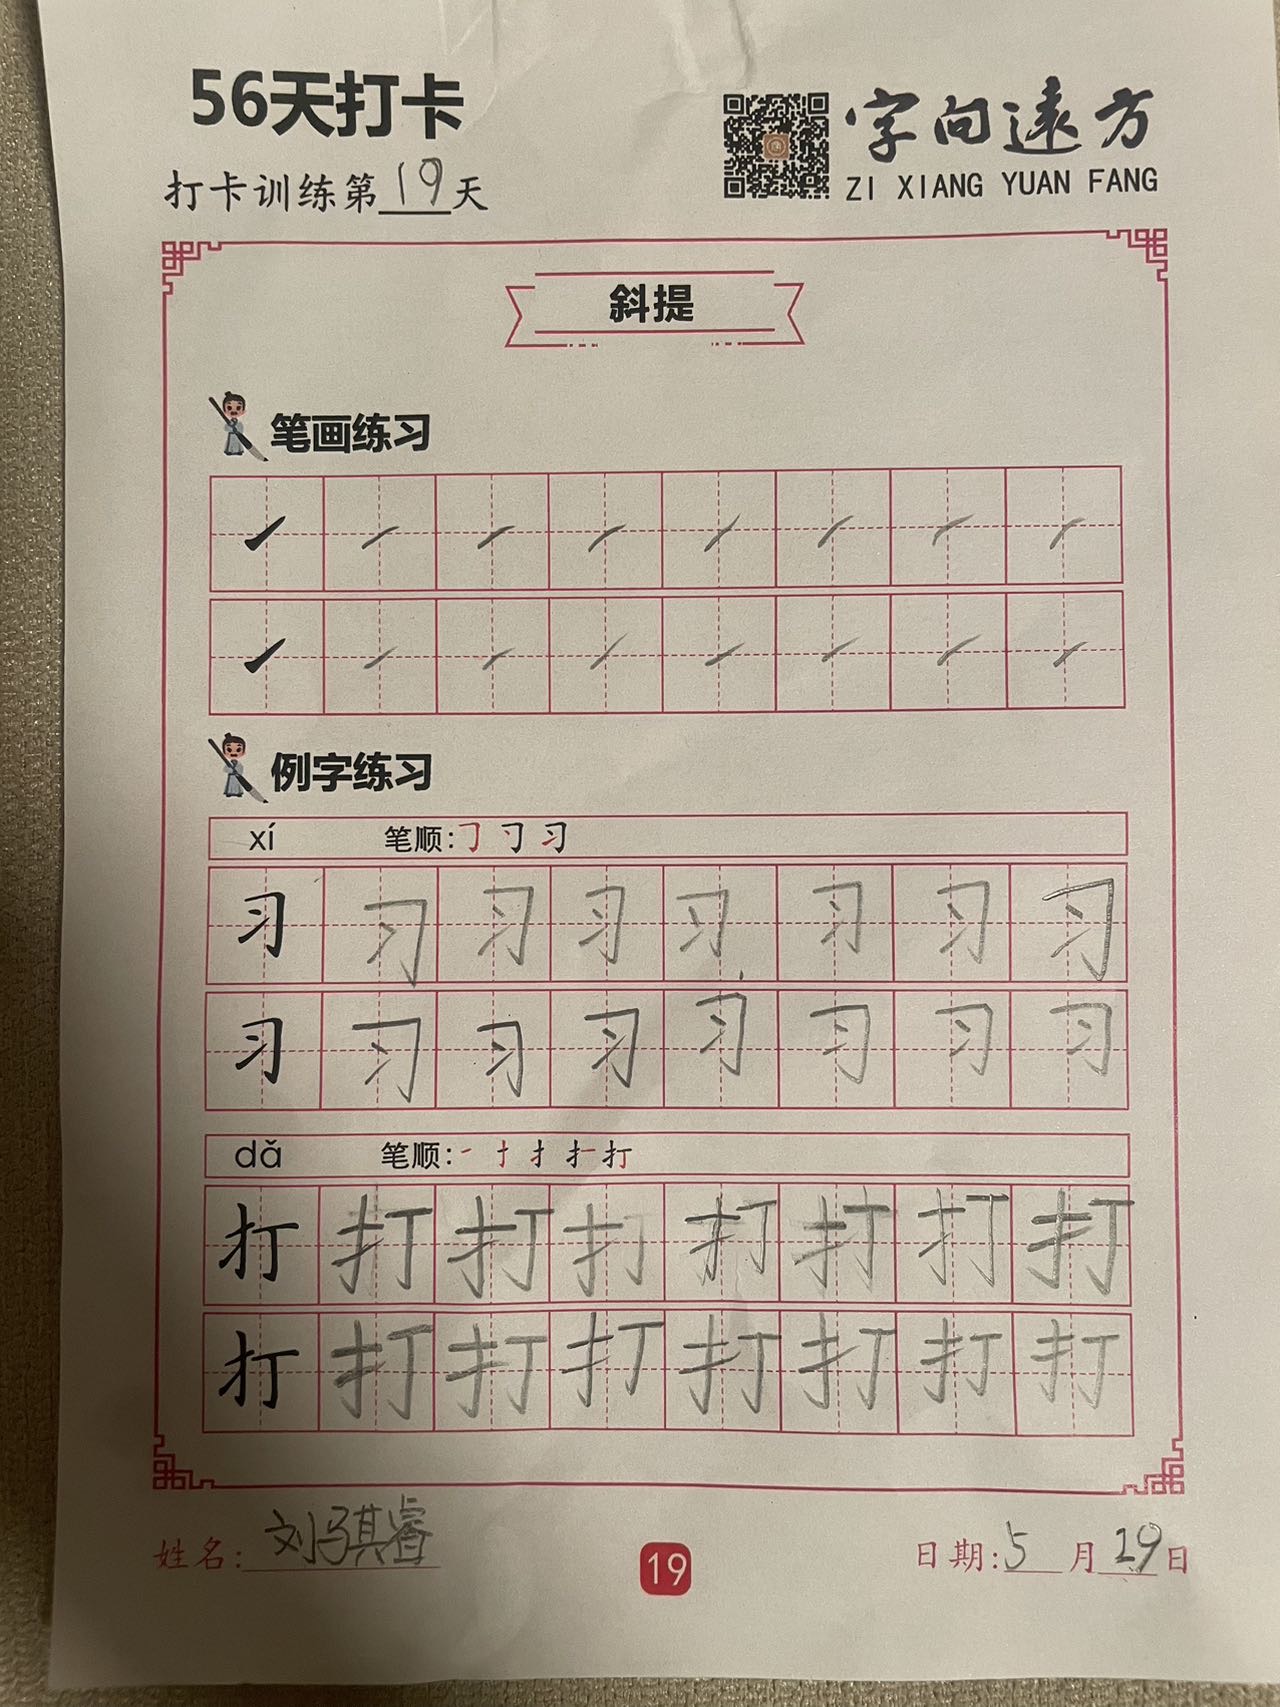 56天打卡
字向遠方
打卡训练第19天
ZI XIANG YUAN FANG
斜提
笔画练习
㇀ ㇀ ㇀ ㇀ ㇀ ㇀ ㇀ ㇀
㇀ ㇀ ㇀ ㇀ ㇀ ㇀ ㇀ ㇀
例字练习
xí 笔顺:㇆ 刁 习
习 习 习 习 习 习 习 习
习 习 习 习 习 习 习 习
dǎ 笔顺:一 十 扌 扌一 打
打 打 打 打 打 打 打 打
打 打 打 打 打 打 打 打
姓名:刘骐睿
19
日期:5月29日